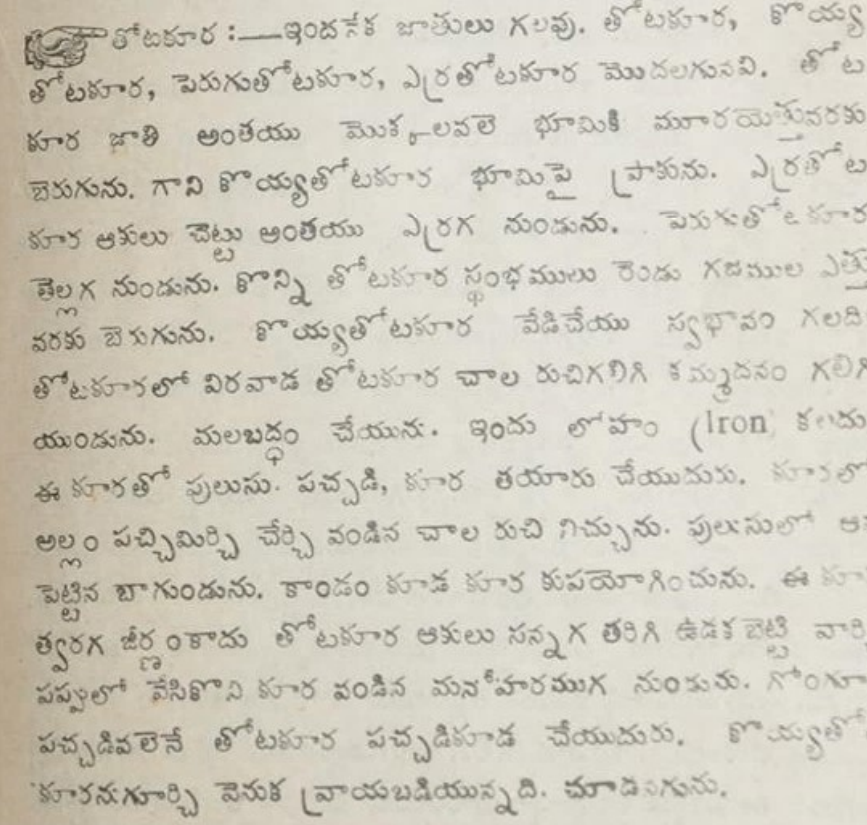 తోటకూర :—ఇందనేక జాతులు గలవు. తోటకూర, కొయ్య
తోటకూర, పెరుగుతోటకూర, ఎర్రతోటకూర మొదలగునవి. తోట
కూర జాతి అంతయు మొక్కలవలె భూమికి మూరయెత్తువరకు
బెరుగును. గాని కొయ్యతోటకూర భూమిపై ప్రాకును. ఎర్రతోట
కూర ఆకులు చెట్టు అంతయు ఎర్రగ నుండును. పెరుగుతోటకూర
తెల్లగ నుండును. కొన్ని తోటకూర స్థంభములు రెండు గజముల ఎత్తు
వరకు బెరుగును. కొయ్యతోటకూర వేడిచేయు స్వభావం గలది
తోటకూరలో విరవాడ తోటకూర చాల రుచిగలిగి కమ్మదనం గలిగి
యుండును. మలబద్ధం చేయును. ఇందు లోహం (Iron) కలదు
ఈ కూరతో పులుసు. పచ్చడి, కూర తయారు చేయుదురు. కూరలో
అల్లం పచ్చిమిర్చి చేర్చి వండిన చాల రుచి నిచ్చును. పులుసులో
పెట్టిన బాగుండును. కాండం కూడ కూర కుపయోగించును. ఈ కూర
త్వరగ జీర్ణంకాదు తోటకూర ఆకులు సన్నగ తరిగి ఉడకబెట్టి వార్చి
పప్పులో వేసికొని కూర వండిన మనోహరముగ నుండును. గోంగూర
పచ్చడివలెనే తోటకూర పచ్చడికూడ చేయుదురు. కొయ్యతోట
కూరనుగూర్చి వెనుక వ్రాయబడియున్నది. చూడనగును.